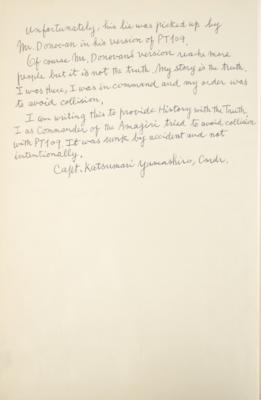 Unfortunately, his lie was picked up by
Mr. Donovan in his version of PT109.
Of course Mr. Donovan's version reaches more
people but it is not the truth. My story is the truth.
I was there, I was in command and my order was
to avoid collision.
I am writing this to provide History with the Truth.
I as Commander of the Amagiri tried to avoid collision
with PT109. It was sunk by accident and not
intentionally.
Capt. Katsumori Yamashiro, Cmdr.